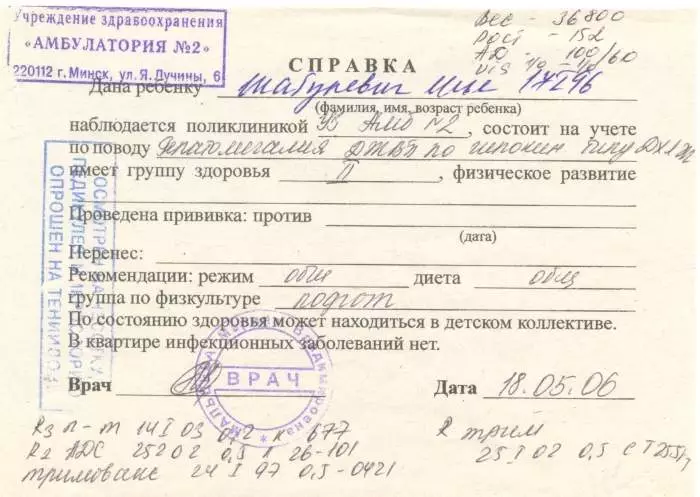 Учреждение здравоохранения
«АМБУЛАТОРИЯ №2»
220112 г. Минск, ул. Я. Лучины, 6
Вес - 36800
Рост - 152
АД - 100/60
Vis
СПРАВКА
Дана ребенку Шабуревич 17 2 96
(фамилия, имя, возраст ребенка)
наблюдается поликлиникой УЗ Амб №2, состоит на учете
по поводу Гепатомегалия ДЖВП по гипокин типу
имеет группу здоровья II, физическое развитие
Проведена прививка: против
(дата)
Перенес:
Рекомендации: режим общ диета общ
группа по физкультуре подгот
По состоянию здоровья может находиться в детском коллективе.
В квартире инфекционных заболеваний нет.
Врач Дата 18.05.06
ВРАЧ
ОСМОТРЕН НА
ПЕДИКУЛЕЗ
ОПРОШЕН НА
R3 п-м 14 I 03 0,2 к 677
R2 АДС 25 2 02 0,5 п 26-101
тримовакс 24 I 97 0,5-0421
R трим
25 I 02 0,5 с